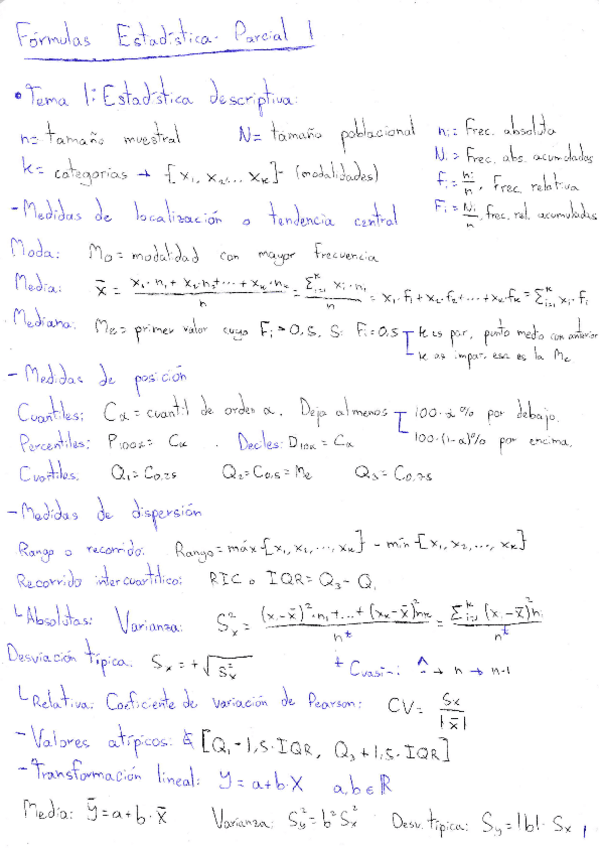 Fórmulas Estadística. Parcial 1
• Tema 1: Estadística descriptiva:
n = tamaño muestral N = tamaño poblacional nᵢ = Frec. absoluta
Nᵢ = Frec. abs. acumuladas
k = categorías → {x₁, x₂, ... xₖ} (modalidades) fᵢ = nᵢ/n, Frec. relativa
Fᵢ = Nᵢ/n, frec. rel. acumuladas
- Medidas de localización o tendencia central
Moda: Mo = modalidad con mayor frecuencia
Media: x̄ = (x₁·n₁ + x₂·n₂ + ... + xₖ·nₖ)/n = (Σᵢ₌₁ᵏ xᵢ·nᵢ)/n = x₁·f₁ + x₂·f₂ + ... + xₖ·fₖ = Σᵢ₌₁ᵏ xᵢ·fᵢ
Mediana: Me = primer valor cuyo Fᵢ > 0,5. Si Fᵢ = 0,5 k es par, punto medio con anterior
k es impar, esa es la Me
- Medidas de posición
Cuantiles: Cα = cuantil de orden α. Deja al menos 100·α% por debajo.
100·(1-α)% por encima.
Percentiles: P₁₀₀α = Cα . Deciles: D₁₀α = Cα
Cuartiles. Q₁ = C₀,₂₅ Q₂ = C₀,₅ = Me Q₃ = C₀,₇₅
- Medidas de dispersión
Rango o recorrido: Rango = máx {x₁, x₂, ..., xₖ} - mín {x₁, x₂, ..., xₖ}
Recorrido intercuartílico: RIC o IQR = Q₃ - Q₁
↳ Absolutas: Varianza: Sₓ² = ((x₁-x̄)²·n₁ + ... + (xₖ-x̄)²nₖ)/n⁺ = (Σᵢ₌₁ᵏ (xᵢ-x̄)²nᵢ)/n⁺
Desviación típica. Sₓ = +√Sₓ² + Cuasi-: ^ → n → n-1
↳ Relativa: Coeficiente de variación de Pearson: CV = Sₓ/|x̄|
- Valores atípicos: ∉ [Q₁ - 1,5·IQR, Q₃ + 1,5·IQR]
- Transformación lineal: Y = a + b·X a, b ∈ ℝ
Media: ȳ = a + b·x̄ Varianza: Sy² = b²Sₓ² Desv. típica: Sy = |b|·Sₓ